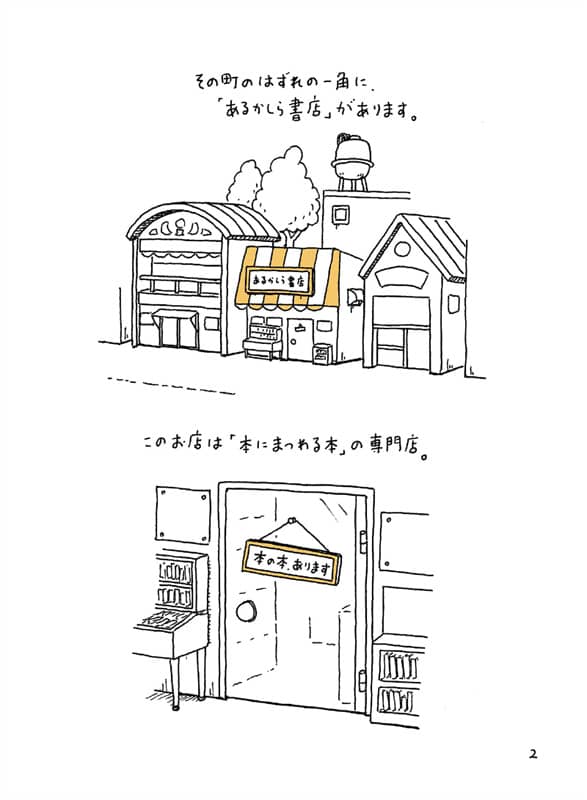 その町のはずれの一角に、
「あるかしら書店」があります。
あるかしら書店
このお店は「本にまつわる本」の専門店。
本の本、あります
2